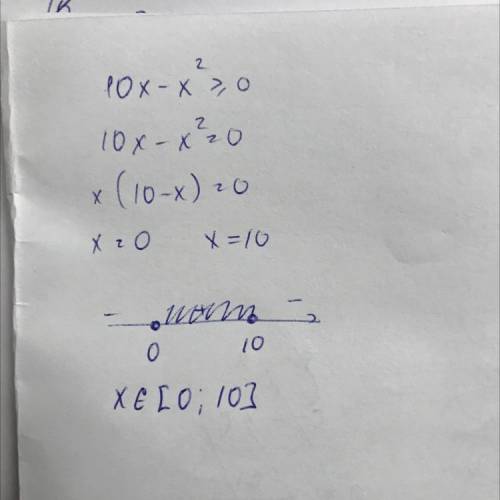 10x - x² ≥ 0
10x - x² = 0
x (10-x) = 0
x = 0 x = 10
- + -
0 10
x ∈ [0; 10]